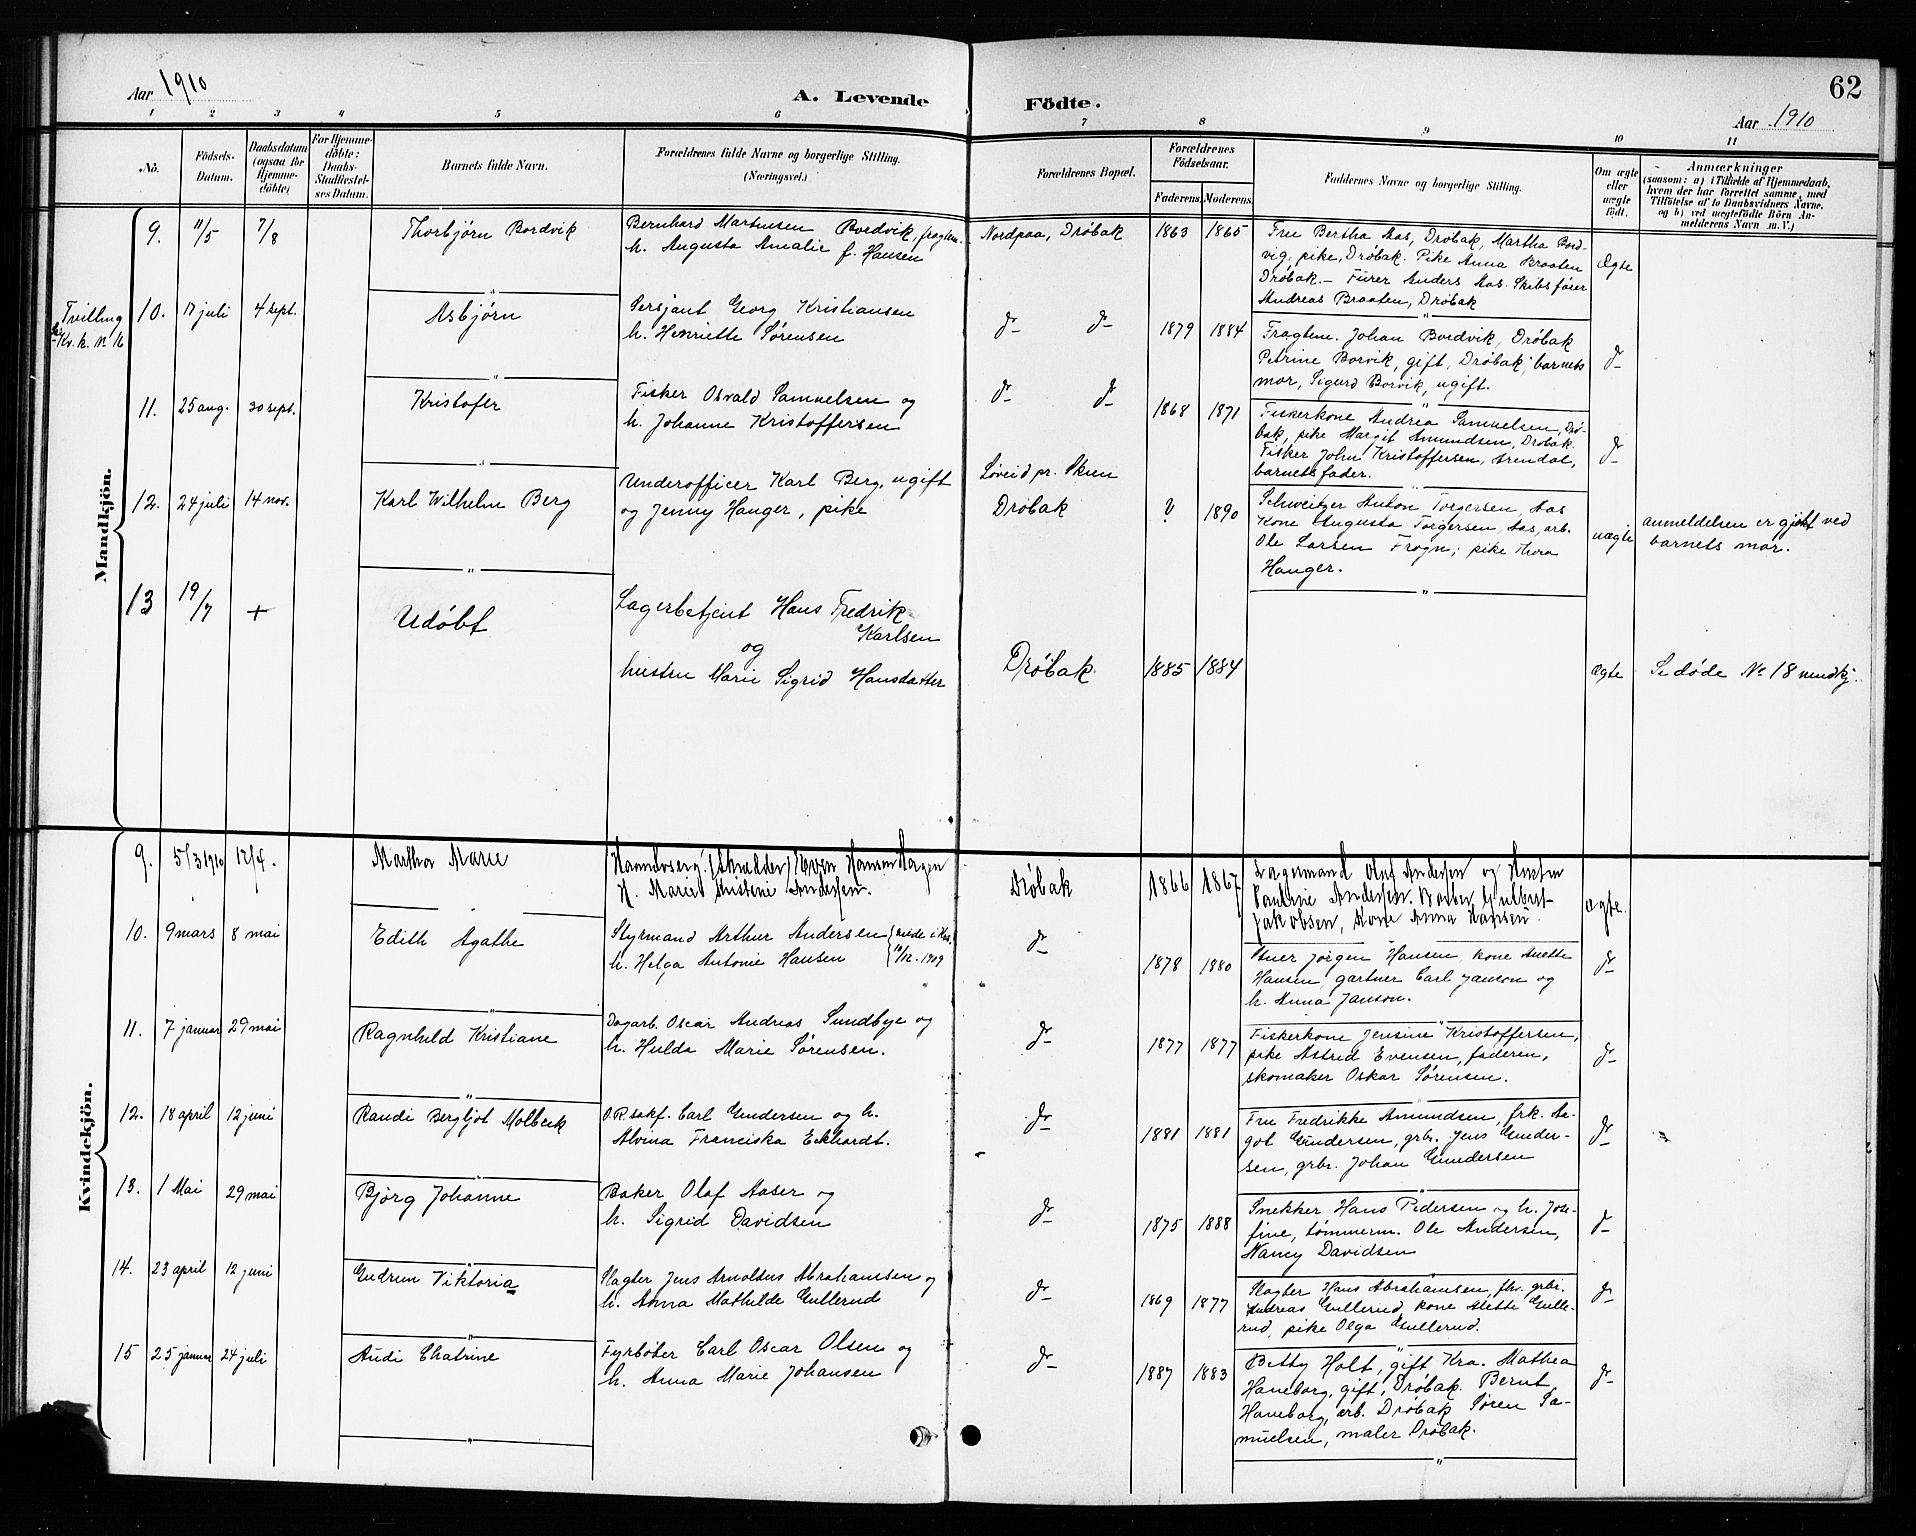 Aar 1910
A. Levende Födte.
Aar 1910
62
1 2 3 4 5 6 7 8 9 10 11
No.
Födsels-Datum.
Daabsdatum (ogsaa for Hjemme-döbte)
For Hjemme-döbte: Daabs-Stadfæstelses Datum.
Barnets fulde Navn.
Forældrenes fulde Navne og borgerlige Stilling. (Næringsvei.)
Forældrenes Bopæl.
Forældrenes Födselsaar.
Faderens. Moderens.
Faddernes Navne og borgerlige Stilling.
Om ægte eller uægte födt.
Anmærkninger
(saasom: a) i Tilfælde af Hjemmedaab,
hvem der har forrettet samme, med
Tilföielse af to Daabsvidners Navne,
og b) ved uægtefödte Börn An-
melderens Navn m. V.)
Mandkjön.
9. 11/5 7/8 Thorbjörn Bordvik
Bernhard Martinsen Bordvik, fragtem.
h. Augusta Amalie f. Hansen
Nordpaa, Dröbak 1863 1865
Fru Bertha Aas, Dröbak, Martha Bord-
vig, pike, Dröbak. Pike Anna Braaten
Dröbak. – Fürer Anders Aas. Skibsförer
Andreas Braaten, Dröbak
Ægte
Tvilling
10. 17 juli 4 sept. Asbjörn
Sersjant Georg Kristiansen
h. Henriette Sörensen
do do 1879 1884
Fragtem. Johan Bordvik, Dröbak
Petrine Borvik, gift, Dröbak, barnets
mor, Sigurd Borvik, ugift.
do
11. 25 aug. 30 sept. Kristofer
Fisker Osvald Samuelsen og
h. Johanne Kristoffersen
do do 1868 1871
Fiskerkone Andrea Samuelsen, Drö-
bak, pike Margit Amundsen, Dröbak
Fisker John Kristoffersen, Arendal,
barnets fader.
do
12. 24 juli 14 nov. Karl Wilhelm Berg
Underofficer Karl Berg, ugift
og Jenny Hanger, pike
Löveid pr. Skien
Dröbak ? 1890
Schweitzer Anton Torgersen, Aas
Kone Augusta Torgersen, Aas, arb.
Ole Larsen Frogn; pike Thora
Hanger.
uægte
anmeldelsen er gjort ved
barnets mor.
13 19/7 + Udöbt
Lagerbetjent Hans Fredrik
Karlsen
og
hustru Marie Sigrid Hansdatter
Dröbak. 1885 1884
ægte
Se döde No 18 mndkj.
Kvindekjön.
9. 5/3 1910 17/4. Martha Marie
Haandværg. (Skrædder) Even Hansen Horgen
H. Marie Kristine Andersen.
Dröbak 1866 1867
Lagermand Olaf Andersen og Hustru
Pauline Andersen. Barber Gulbert
Jakobsen, Kone Anna Hansen
ægte.
10. 9 mars 8 mai Edith Agathe
Styrmand Arthur Andersen
h. Helga Antonie Hansen
do 1878 1880
Stuer Jörgen Hansen, kone Anette
Hansen, gartner Carl Janson og
h. Anna Janson.
do
11. 7 januar 29 mai Ragnhild Kristiane
Dagarb. Oscar Andreas Sundbye og
h. Hulda Marie Sörensen.
do 1877 1877
Fiskerkone Jensine Kristoffersen,
pike Astrid Evensen, faderen,
skomaker Oskar Sörensen.
do
12. 18 april 12 juni Randi Bergljot Molbeck
O.R. sakf. Carl Gundersen og h.
Alvina Franciska Eckhardt.
do 1881 1881
Fru Fredrikke Amundsen, frk. Aa-
got Gundersen, grbr. Jens Gunder-
sen, grbr. Johan Gundersen
do
13. 1 Mai 29 mai Björg Johanne
Baker Olaf Aaser og
h. Sigrid Davidsen
do 1875 1888
Snekker Hans Pedersen og h. Jose-
fine, tömmerm. Ole Andersen,
Nancy Davidsen
do
14. 23 april 12 juni Gudrun Viktoria
Slagter Jens Arnoldus Abrahamsen og
h. Anna Mathilde Gullerud
do 1869 1877
Slagter Hans Abrahamsen, fhv. grbr.
Andreas Gullerud, kone Mette Gulle-
rud, pike Olga Gullerud.
do
15 25 januar 24 juli Audi Chatrine
Fyrböter Carl Oscar Olsen og
h. Anna Marie Johansen
do 1887 1883
Betty Holt, gift Kra. Mathea
Haneborg, gift, Dröbak. Bernt
Haneborg, arb. Dröbak Sören Sa-
muelsen, maler Dröbak.
do